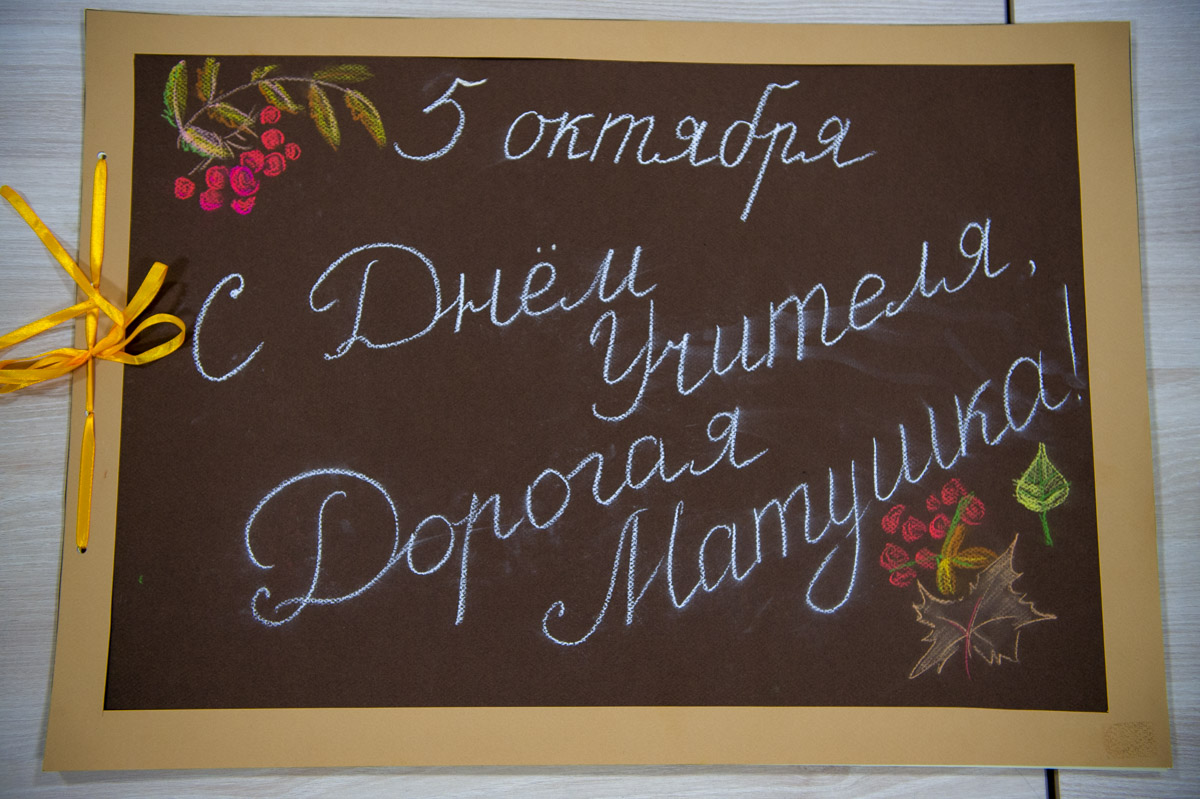 5 октября
С Днём
Учителя,
Дорогая
Матушка!